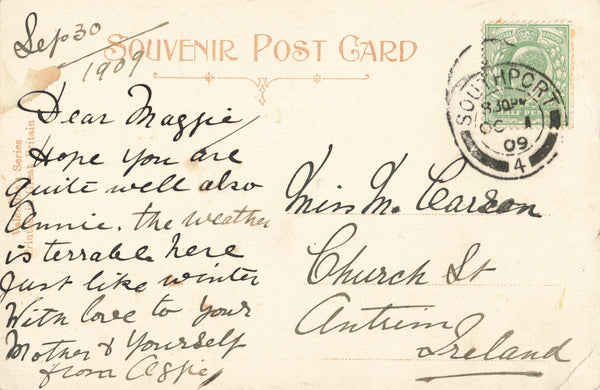 Sep 30
1909
SOUVENIR POST CARD
SOUTHPORT
8.30PM
OC 1
09
4
HALF PENNY
Dear Maggie
Hope you are
quite well also
Annie. the weather
is terrable here
Just like winter
With love to your
Mother & Yourself
from Aggie
Miss M. Carson
Church St
Antrim
Ireland
Series
Britain